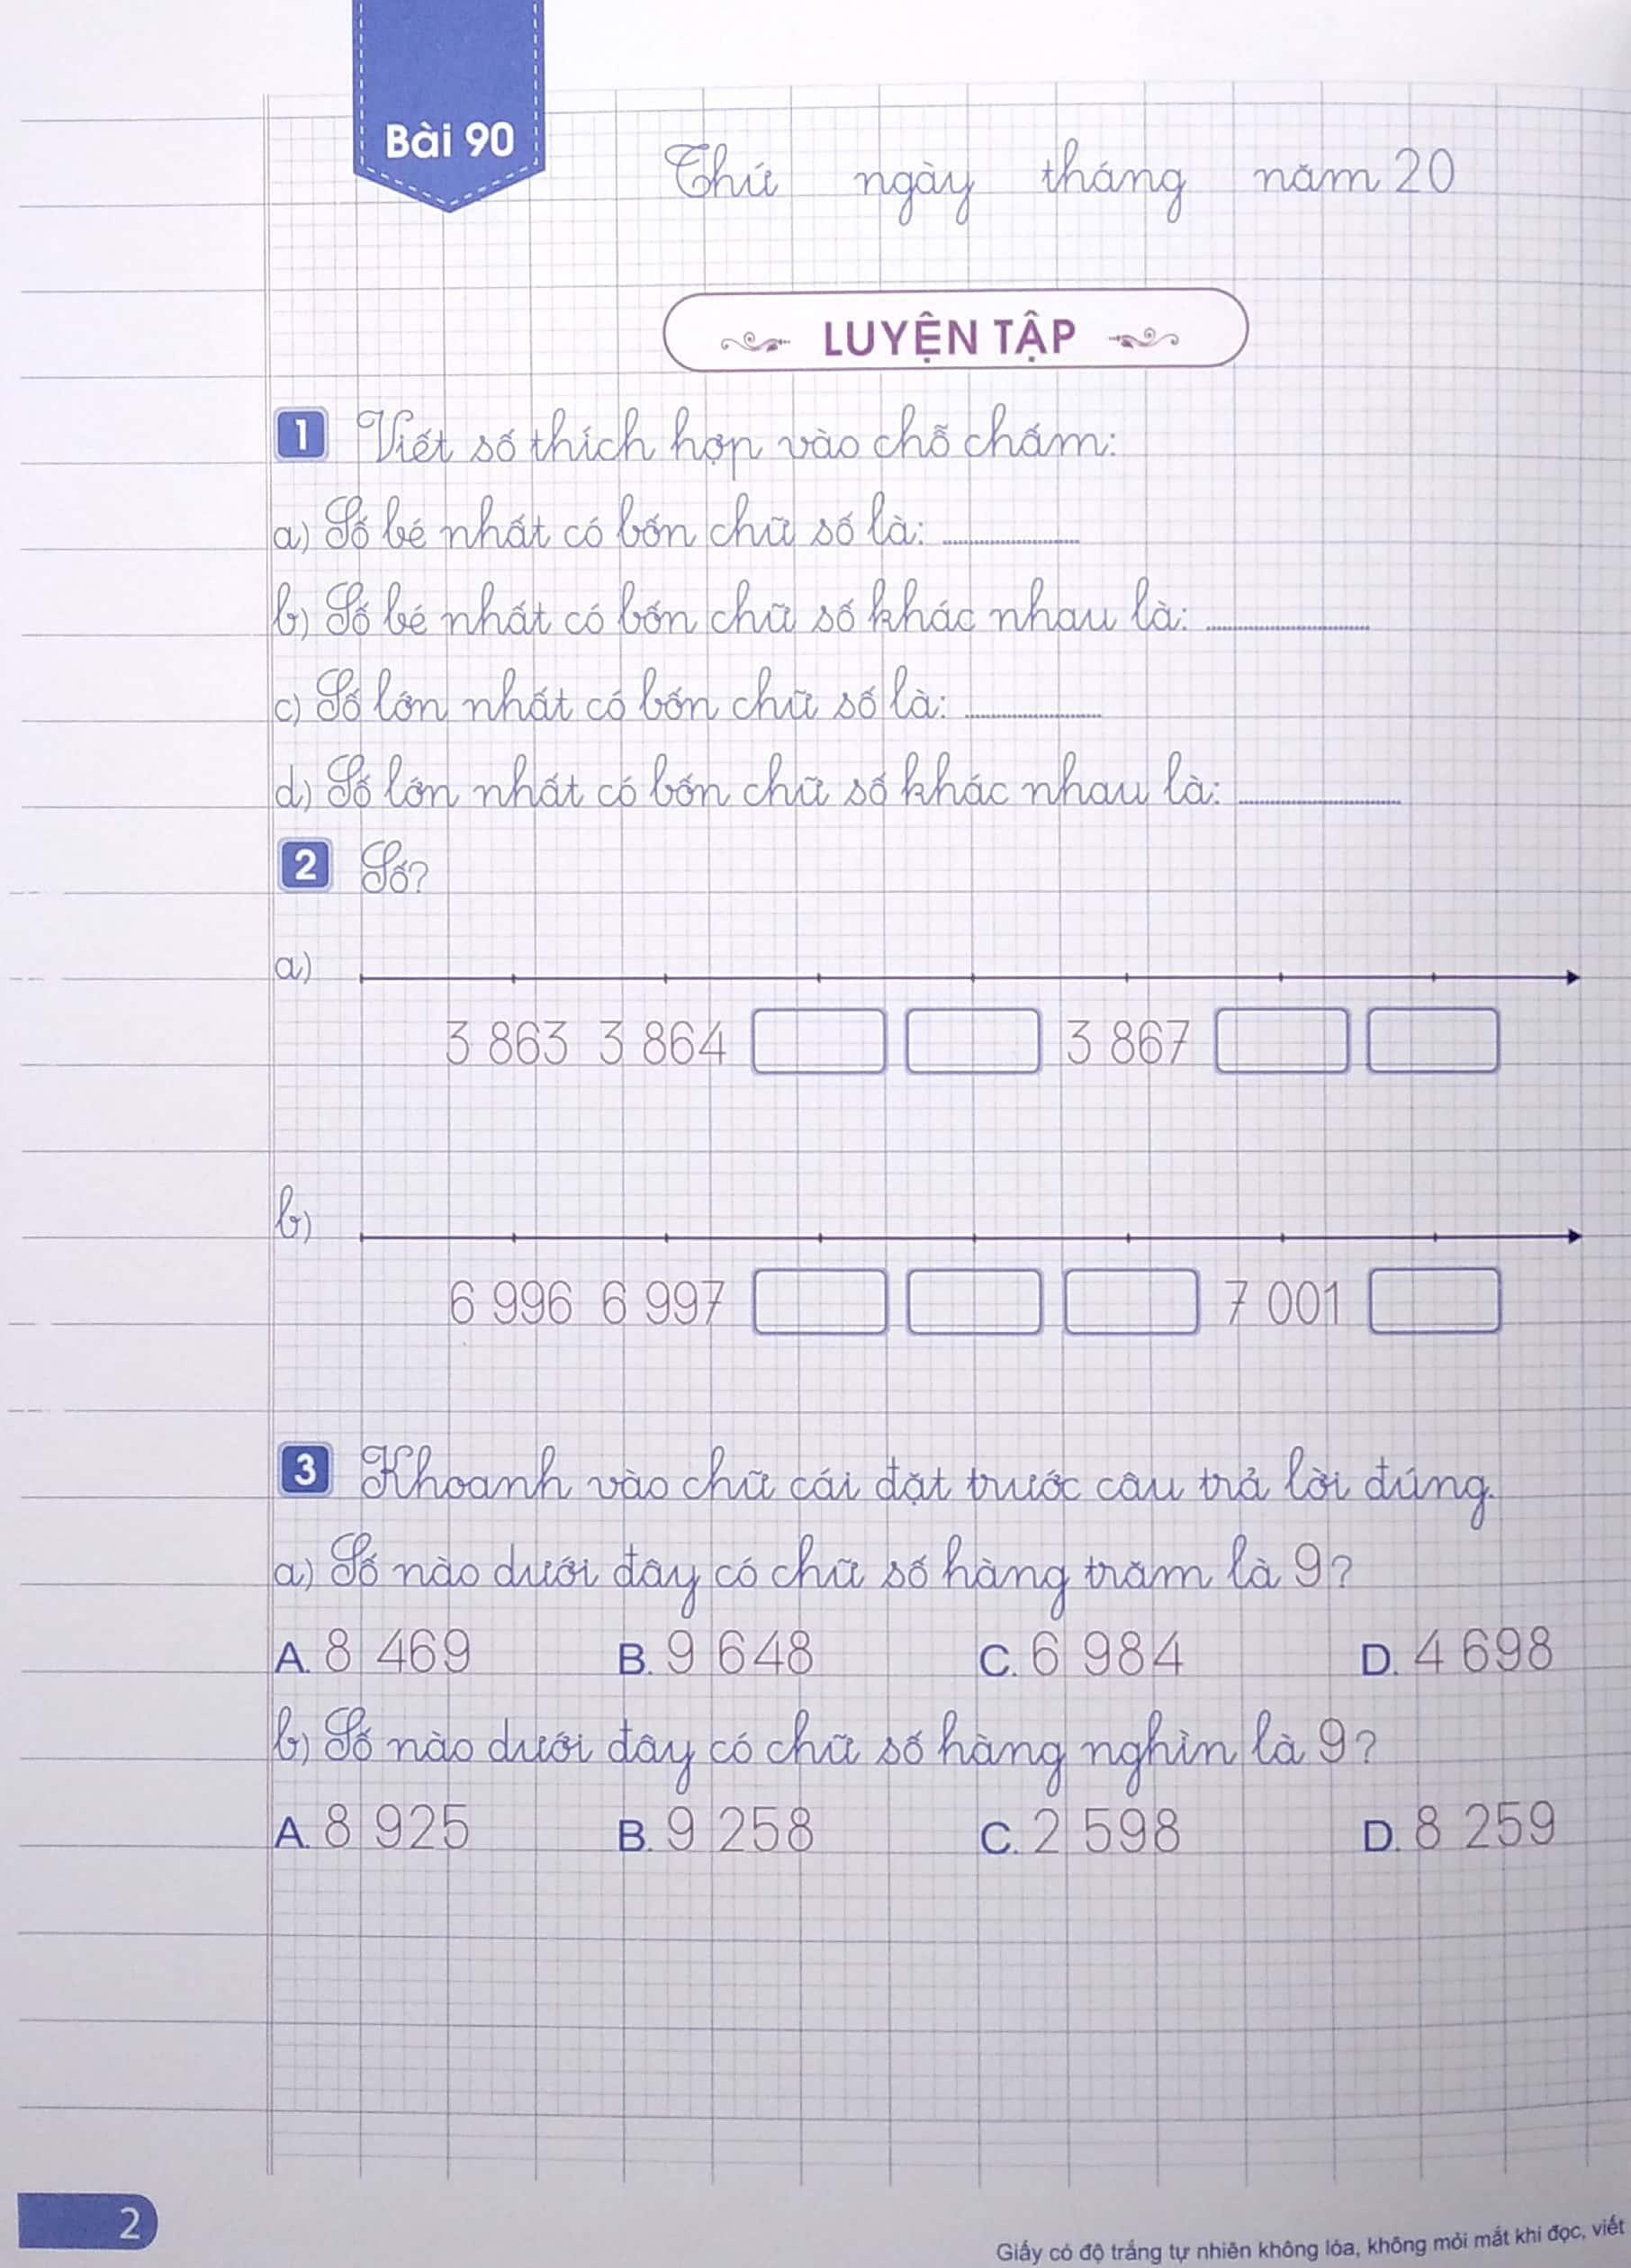 Bài 90
Thứ ngày tháng năm 20
LUYỆN TẬP
1 Viết số thích hợp vào chỗ chấm:
a) Số bé nhất có bốn chữ số là: ............
b) Số bé nhất có bốn chữ số khác nhau là: ............
c) Số lớn nhất có bốn chữ số là: ............
d) Số lớn nhất có bốn chữ số khác nhau là: ............
2 Số?
a)
3 863 3 864 3 867
b)
6 996 6 997 7 001
3 Khoanh vào chữ cái đặt trước câu trả lời đúng.
a) Số nào dưới đây có chữ số hàng trăm là 9?
A. 8 469 B. 9 648 C. 6 984 D. 4 698
b) Số nào dưới đây có chữ số hàng nghìn là 9?
A. 8 925 B. 9 258 C. 2 598 D. 8 259
2
Giấy có độ trắng tự nhiên không lóa, không mỏi mắt khi đọc, viết